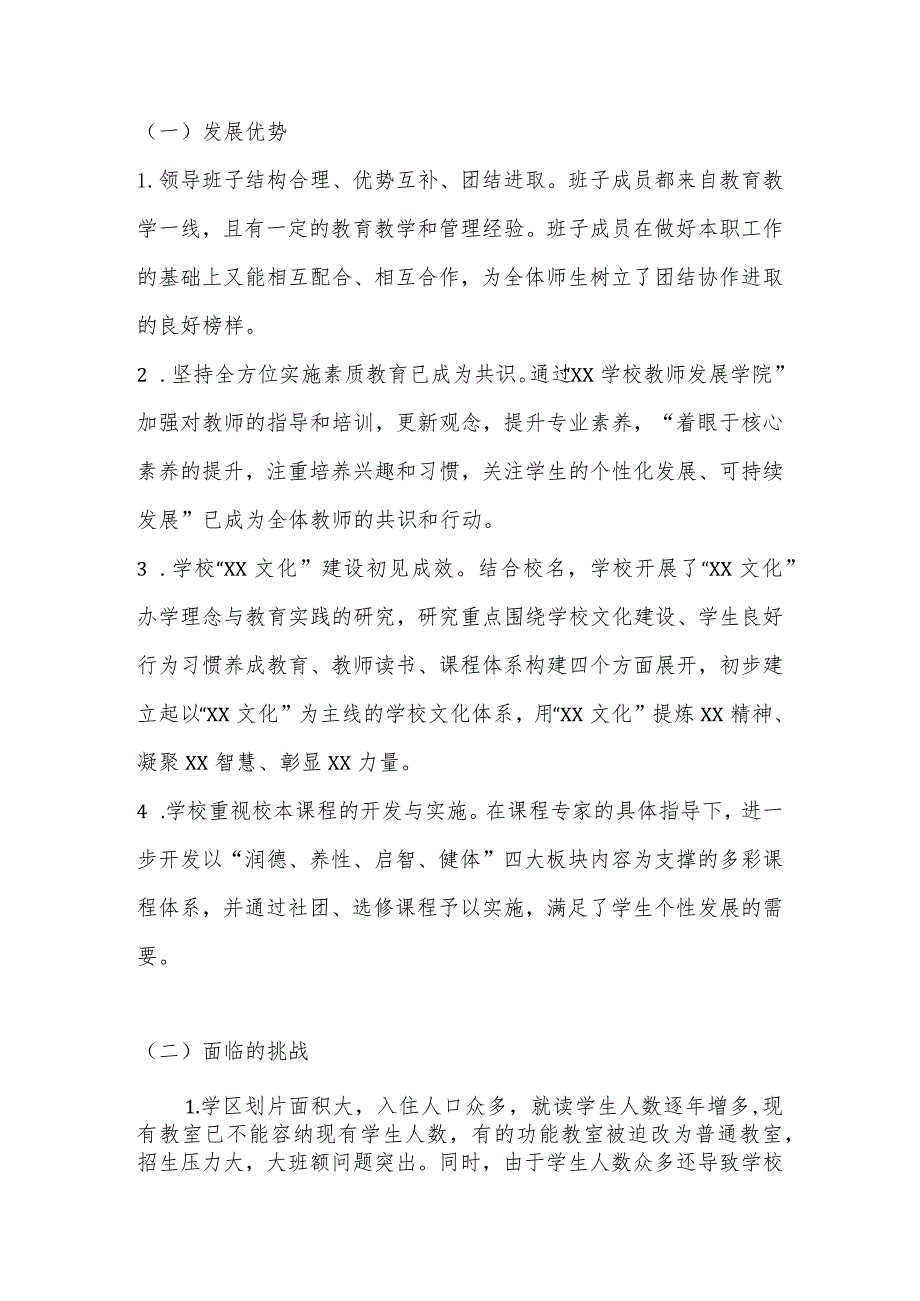 （一）发展优势
1. 领导班子结构合理、优势互补、团结进取。班子成员都来自教育教
学一线，且有一定的教育教学和管理经验。班子成员在做好本职工作
的基础上又能相互配合、相互合作，为全体师生树立了团结协作进取
的良好榜样。
2 .坚持全方位实施素质教育已成为共识。通过“XX 学校教师发展学院”
加强对教师的指导和培训，更新观念，提升专业素养，“着眼于核心
素养的提升，注重培养兴趣和习惯，关注学生的个性化发展、可持续
发展”已成为全体教师的共识和行动。
3 .学校“XX 文化”建设初见成效。结合校名，学校开展了“XX 文化”
办学理念与教育实践的研究，研究重点围绕学校文化建设、学生良好
行为习惯养成教育、教师读书、课程体系构建四个方面展开，初步建
立起以“XX 文化”为主线的学校文化体系，用“XX 文化”提炼 XX 精神、
凝聚 XX 智慧、彰显 XX 力量。
4 .学校重视校本课程的开发与实施。在课程专家的具体指导下，进一
步开发以“润德、养性、启智、健体”四大板块内容为支撑的多彩课
程体系，并通过社团、选修课程予以实施，满足了学生个性发展的需
要。
（二）面临的挑战
1.学区划片面积大，入住人口众多，就读学生人数逐年增多,现
有教室已不能容纳现有学生人数，有的功能教室被迫改为普通教室，
招生压力大，大班额问题突出。同时，由于学生人数众多还导致学校